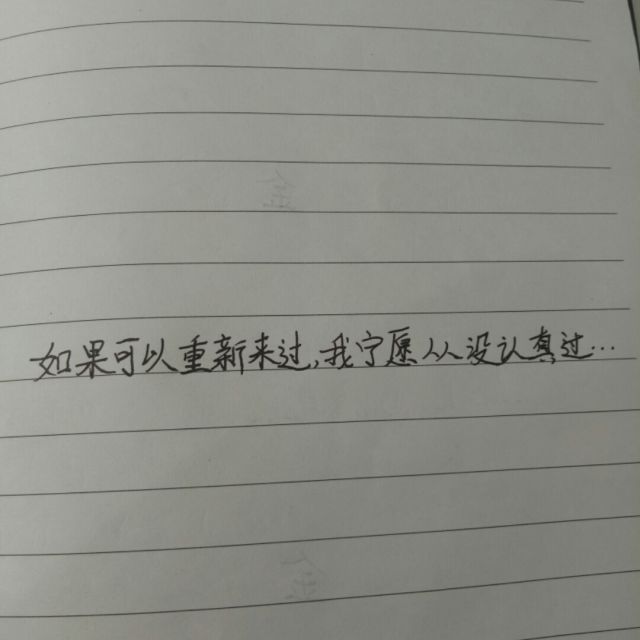 如果可以重新来过,我宁愿从没认真过...